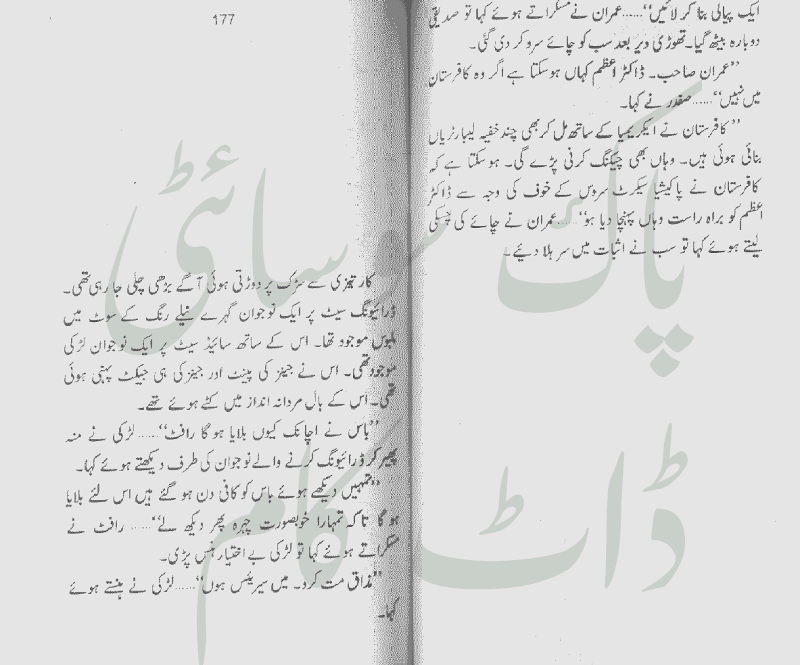 ایک پیالی بنا کر لائیں‘‘......عمران نے مسکراتے ہوئے کہا تو صدیقی
دوبارہ بیٹھ گیا۔ تھوڑی دیر بعد سب کو چائے سرو کر دی گئی۔
’’عمران صاحب۔ ڈاکٹر اعظم کہاں ہو سکتا ہے اگر وہ کافرستان
میں نہیں‘‘......صفدر نے کہا۔
’’کافرستان نے ایکریمیا کے ساتھ مل کر بھی چند خفیہ لیبارٹریاں
بنائی ہوئی ہیں۔ وہاں بھی چیکنگ کرنی پڑے گی۔ ہو سکتا ہے کہ
کافرستان نے پاکیشیا سیکرٹ سروس کے خوف کی وجہ سے ڈاکٹر
اعظم کو براہ راست وہاں پہنچا دیا ہو‘‘......عمران نے چائے کی چسکی
لیتے ہوئے کہا تو سب نے اثبات میں سر ہلا دیئے۔
177
کار تیزی سے سڑک پر دوڑتی ہوئی آگے بڑھی چلی جا رہی تھی۔
ڈرائیونگ سیٹ پر ایک نوجوان گہرے نیلے رنگ کے سوٹ میں
ملبوس موجود تھا۔ اس کے ساتھ سائیڈ سیٹ پر ایک نوجوان لڑکی
موجود تھی۔ اس نے جینز کی پینٹ اور جینز کی ہی جیکٹ پہنی ہوئی
تھی۔ اس کے بال مردانہ انداز میں کٹے ہوئے تھے۔
’’باس نے اچانک کیوں بلایا ہو گا رافٹ‘‘......لڑکی نے منہ
پھیر کر ڈرائیونگ کرنے والے نوجوان کی طرف دیکھتے ہوئے کہا۔
’’تمہیں دیکھے ہوئے باس کو کافی دن ہو گئے ہیں اس لئے بلایا
ہو گا تاکہ تمہارا خوبصورت چہرہ پھر دیکھ لے‘‘......رافٹ نے
مسکراتے ہوئے کہا تو لڑکی بے اختیار ہنس پڑی۔
’’مذاق مت کرو۔ میں سیریئس ہوں‘‘......لڑکی نے ہنستے ہوئے
کہا۔
پاک سوسائٹی
ڈاٹ کام